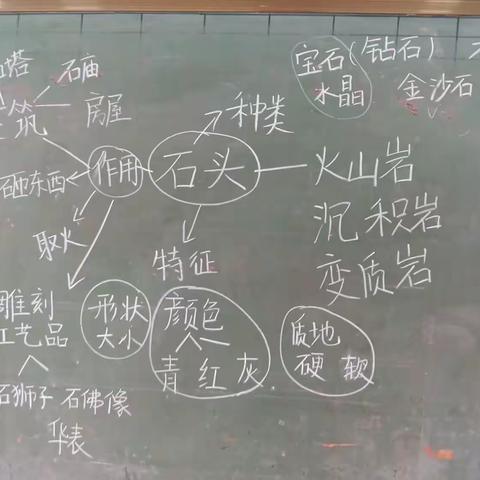 宝石(钻石)
水晶
金沙石
塔
石庙
筑
房屋
种类
作用
石头
火山岩
砸东西
沉积岩
取火
特征
变质岩
雕刻
工艺品
形状
大小
颜色
青 红 灰
质地
硬 软
石狮子 石佛像
华表